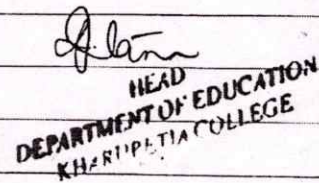 HEAD
DEPARTMENT OF EDUCATION
KHARUPETIA COLLEGE